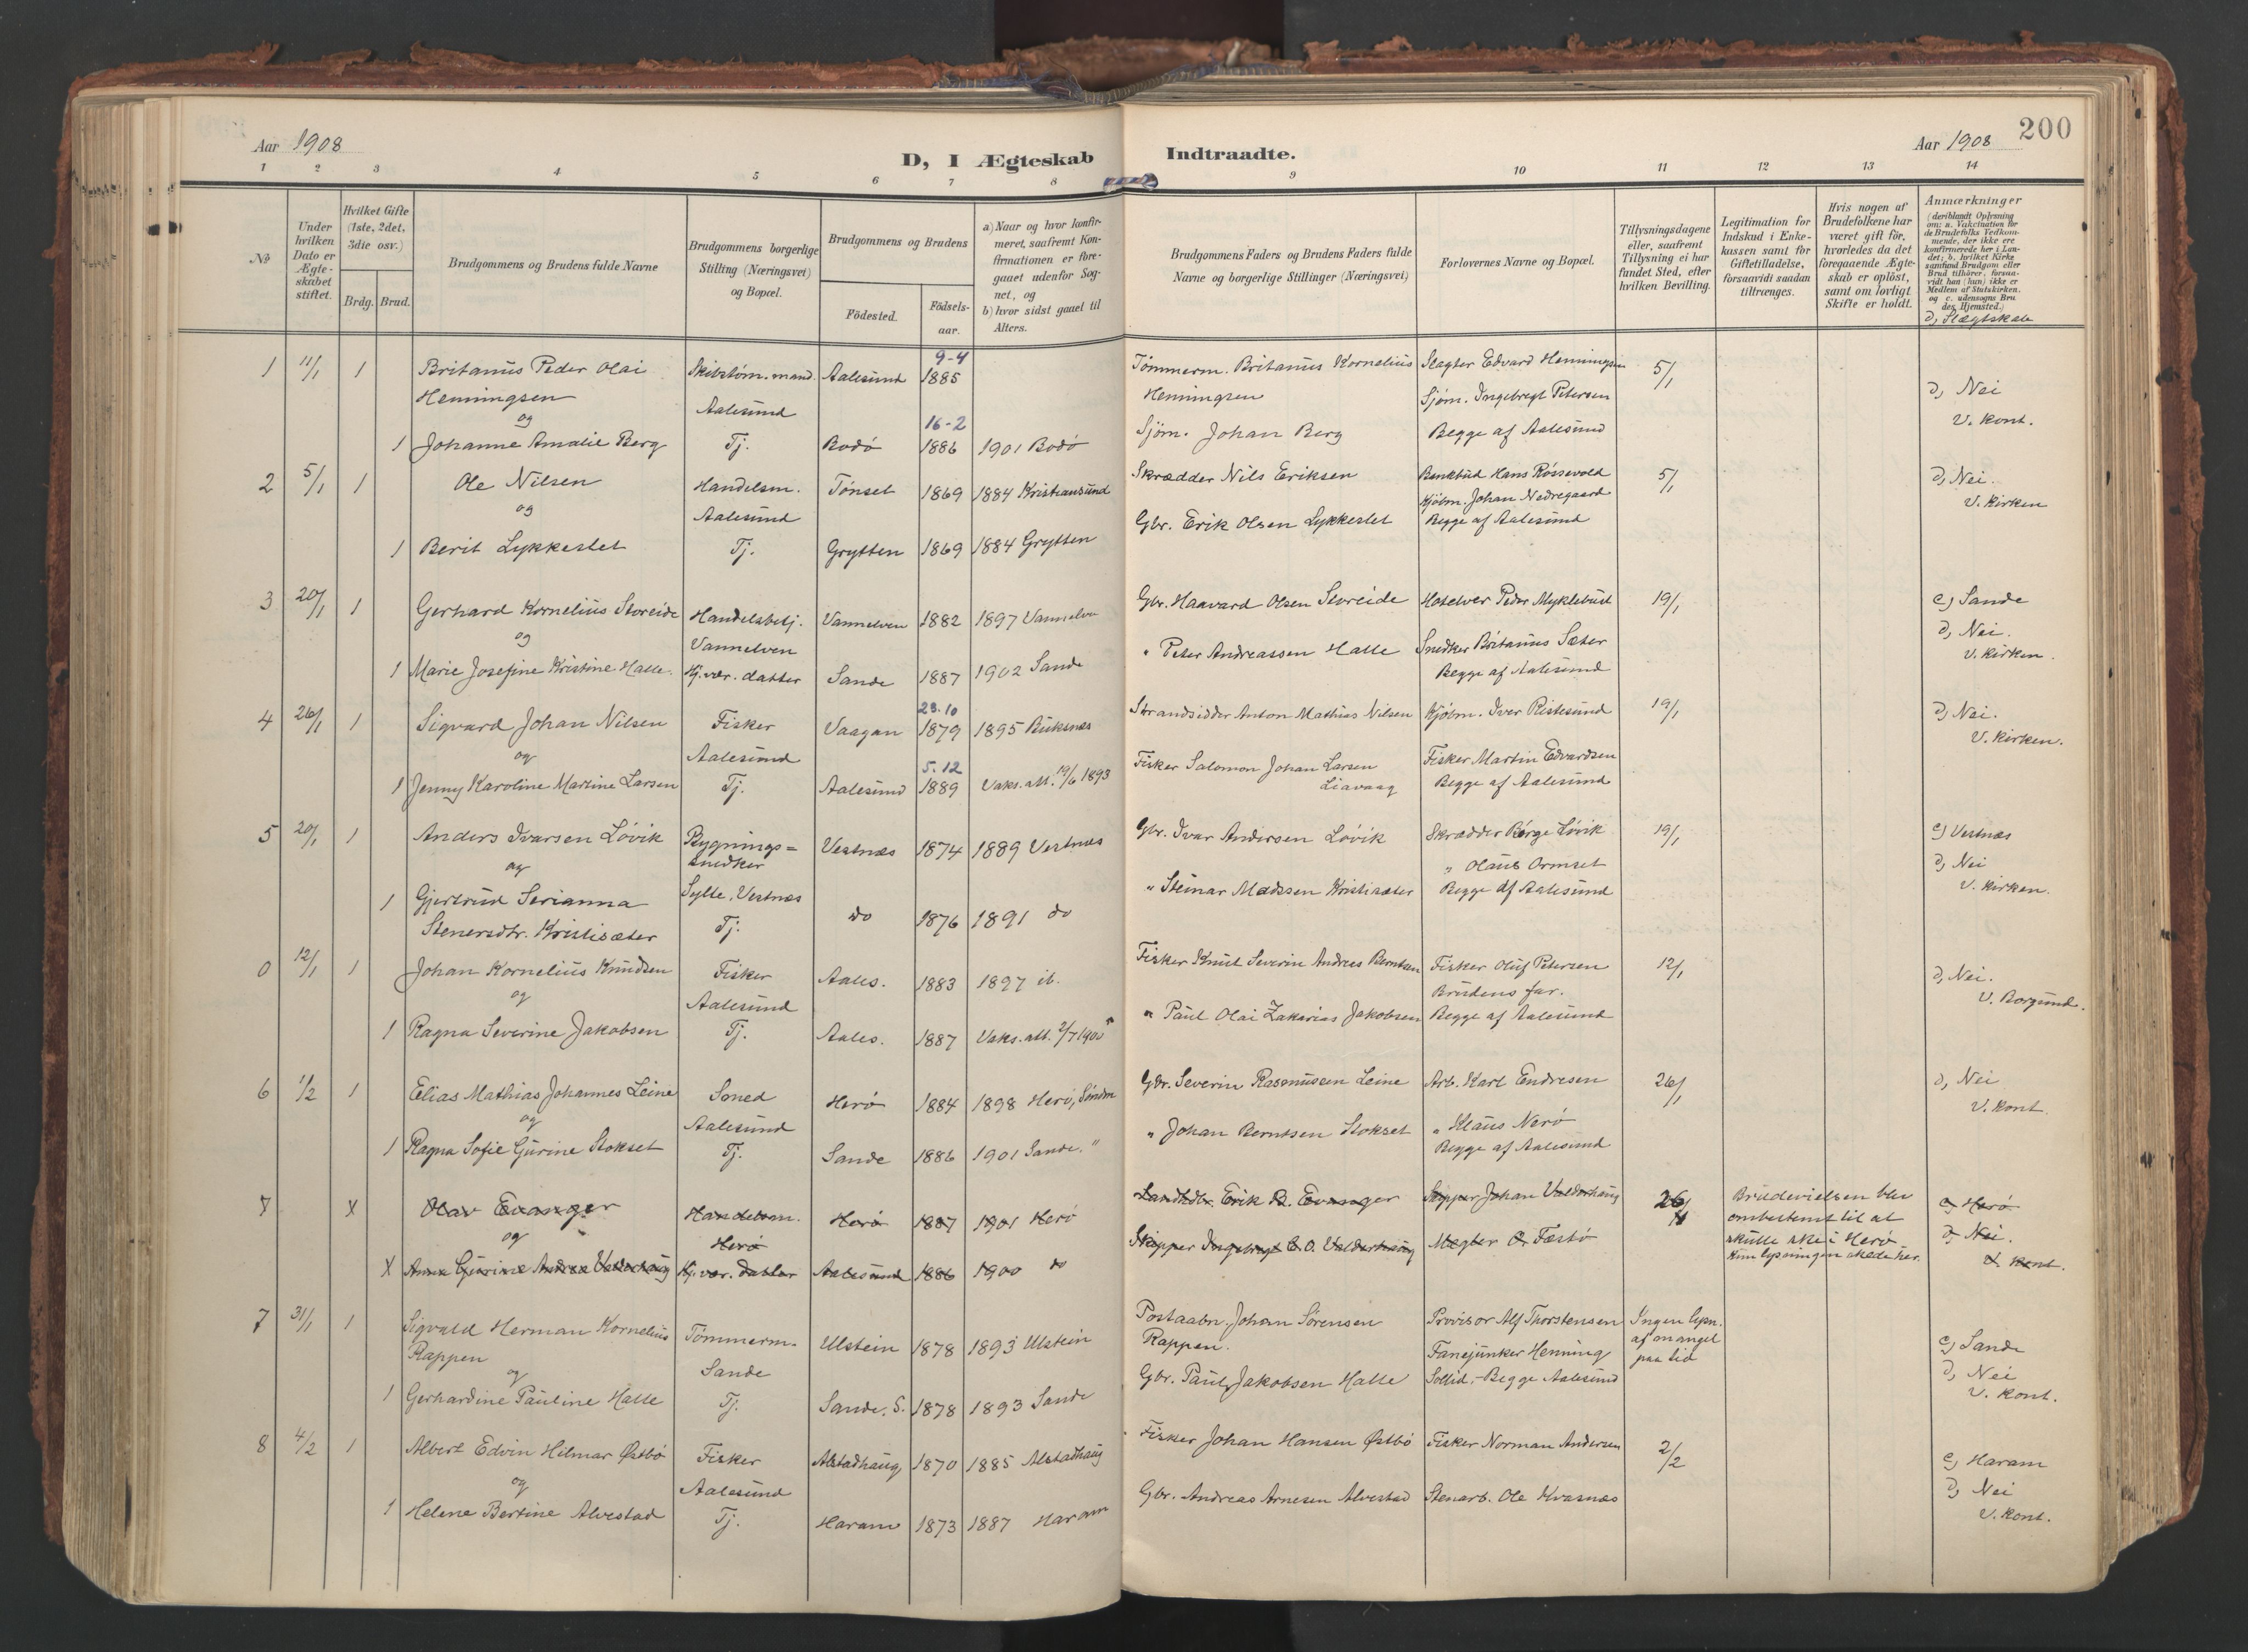 Aar 1908
D, I Ægteskab
Indtraadte.
Aar 1908
200
1 2 3 4 5 6 7 8 9 10 11 12 13 14
No
Under hvilken Dato er Ægteskabet stiftet.
Hvilket Gifte (1ste, 2det, 3die osv.)
Brdg. Brud.
Brudgommens og Brudens fulde Navne
Brudgommens borgerlige Stilling (Næringsvei) og Bopæl.
Brudgommens og Brudens
Födested.
Födsels-aar.
a) Naar og hvor konfirmeret, saafremt Konfirmationen er foregaaet udenfor Sognet, og
b) hvor sidst gaaet til Alters.
Brudgommens Faders og Brudens Faders fulde Navne og borgerlige Stillinger (Næringsvei)
Forlovernes Navne og Bopæl.
Tillysningsdagene eller, saafremt Tillysning ei har fundet Sted, efter hvilken Bevilling.
Legitimation for Indskud i Enkekassen samt for Giftetilladelse, forsaavidt saadan tiltrænges.
Hvis nogen af Brudefolkene har været gift för, hvorledes da det foregaaende Ægteskab er oplöst, samt om lovligt Skifte er holdt.
Anmærkninger
(deriblandt Oplysning om: a. Vakcination for de Brudefolks Vedkommende, der ikke ere konfirmerede her i Landet; b. hvilket Kirkesamfund Brudgom eller Brud tilhörer, forsaavidt han (hun) ikke er Medlem af Statskirken, og c. udensogns Brudes Hjemsted.)
d, Slægtskab
1 11/1 1 Britanus Peder Olai Skibstøm.mand. Aalesund 9-4 1885 Tömmerm. Britanus Kornelius Slagter Edvard Henningsen 5/1
Henningsen Aalesund Henningsen Sjøm. Ingebregt Petersen d, Nei
og 16-2 V. kont.
1 Johanne Amalie Berg Tj. Bodö 1886 1901 Bodö Sjøm. Johan Berg Begge af Aalesund
2 5/1 1 Ole Nilsen Handelsm. Tönset 1869 1884 Kristiansund Skrædder Nils Eriksen Bankbud Hans Røssevold 5/1 d, Nei.
og Aalesund Kjöbm. Johan Nedregaard V. Kirken
1 Berit Lykkeslet Tj. Grytten 1869 1884 Grytten Gbr. Erik Olsen Lykkeslet Begge af Aalesund
3 20/1 1 Gerhard Kornelius Storeide Handelsbetj. Vannelven 1882 1897 Vannelven Gbr. Haavard Olsen Storeide Hotelver Peder Myklebust 19/1 c) Sande
og Vannelven d, Nei.
1 Marie Josefine Kristine Halle Kj.vær. datter Sande 1887 1902 Sande " Peter Andreassen Halle Snedker Britanus Sæter V. Kirken.
Begge af Aalesund
4 26/1 1 Sigvard Johan Nilsen Fisker Vaagan 23.10 1879 1895 Buksnæs Strandsidder Anton Mathias Nilsen Kjöbm. Iver Ristesund 19/1 d, Nei.
og Aalesund 5.12 Fisker Martin Edvardsen V. Kirken.
1 Jenny Karoline Martine Larsen Tj. Aalesund 1889 Vaks.att. 19/6 1893 Fisker Salomon Johan Larsen Liavaag Begge af Aalesund
5 20/1 1 Anders Ivarsen Lövik Bygnings= Vestnæs 1874 1889 Vestnæs Gbr. Ivar Andersen Lövik Skrædder Börge Lövik 19/1 c) Vestnæs
og snedker " Olaus Ormset d, Nei
1 Gjertrud Serianna Sylte, Vestnæs do 1876 1891 do " Steinar Madssen Kristisæter Begge af Aalesund V. Kirken.
Stenersdtr. Kristisæter Tj.
0 12/1 1 Johan Kornelius Knudsen Fisker Aales. 1883 1897 ib. Fisker Knut Severin Andreas Berntsen Fisker Oluf Petersen 12/1 d, Nei.
og Aalesund Brudens far. V. Borgund.
1 Ragna Severine Jakobsen Tj. Aales. 1887 Vaks.att. 2/7 1900 " Paul Olai Zakarias Jakobsen Begge af Aalesund
6 1/2 1 Elias Mathias Johannes Leine Smed Herö 1884 1898 Herö, Söndm Gbr. Severin Rasmussen Leine Arb. Karl Endresen 26/1 d, Nei
og Aalesund " Klaus Nerö V. Kont.
1 Ragna Sofie Gurine Stokset Tj. Sande 1886 1901 Sande. " " Johan Berntsen Stokset Begge af Aalesund
7 X Olav Evanger Handelsm. Herö 1887 1901 Herö Landhdlr. Erik B. Evanger Skipper Johan Valderhaug 26/1 Brudevielsen blev c) Herö
og Herö ombestemt til at d, Nei.
X Anna Gurine Andrea Valderhaug Kj.vær. datter Aalesund 1886 1900 do Skipper Ingebregt B. O. Valderhaug Mægler O. Fæstö skulle ske i Herö V. Kont.
Kun lysningen skede her.
7 31/1 1 Sigvald Herman Kornelius Tömmerm. Ulstein 1878 1893 Ulstein Postaabn. Johan Sörensen Provisor Alf Thorstensen Ingen lysn.
Rappen Sande Rappen. Fanejunker Henning af mangel c) Sande
og paa tid d, Nei
1 Gerhardine Pauline Halle Tj. Sande, S. 1878 1893 Sande Gbr. Paul Jakobsen Halle Sollid, - Begge Aalesund V. Kont.
8 4/2 1 Albert Edvin Hilmar Østbö Fisker Alstadhaug 1870 1885 Alstadhaug Fisker Johan Hansen Østbö Fisker Norman Andersen 2/2 c) Haram
og Aalesund d, Nei
1 Helene Bertine Alvestad Tj. Haram 1873 1887 Haram Gbr. Andreas Arnesen Alvestad Stenarb. Ole Kvasnæs V. Kont.